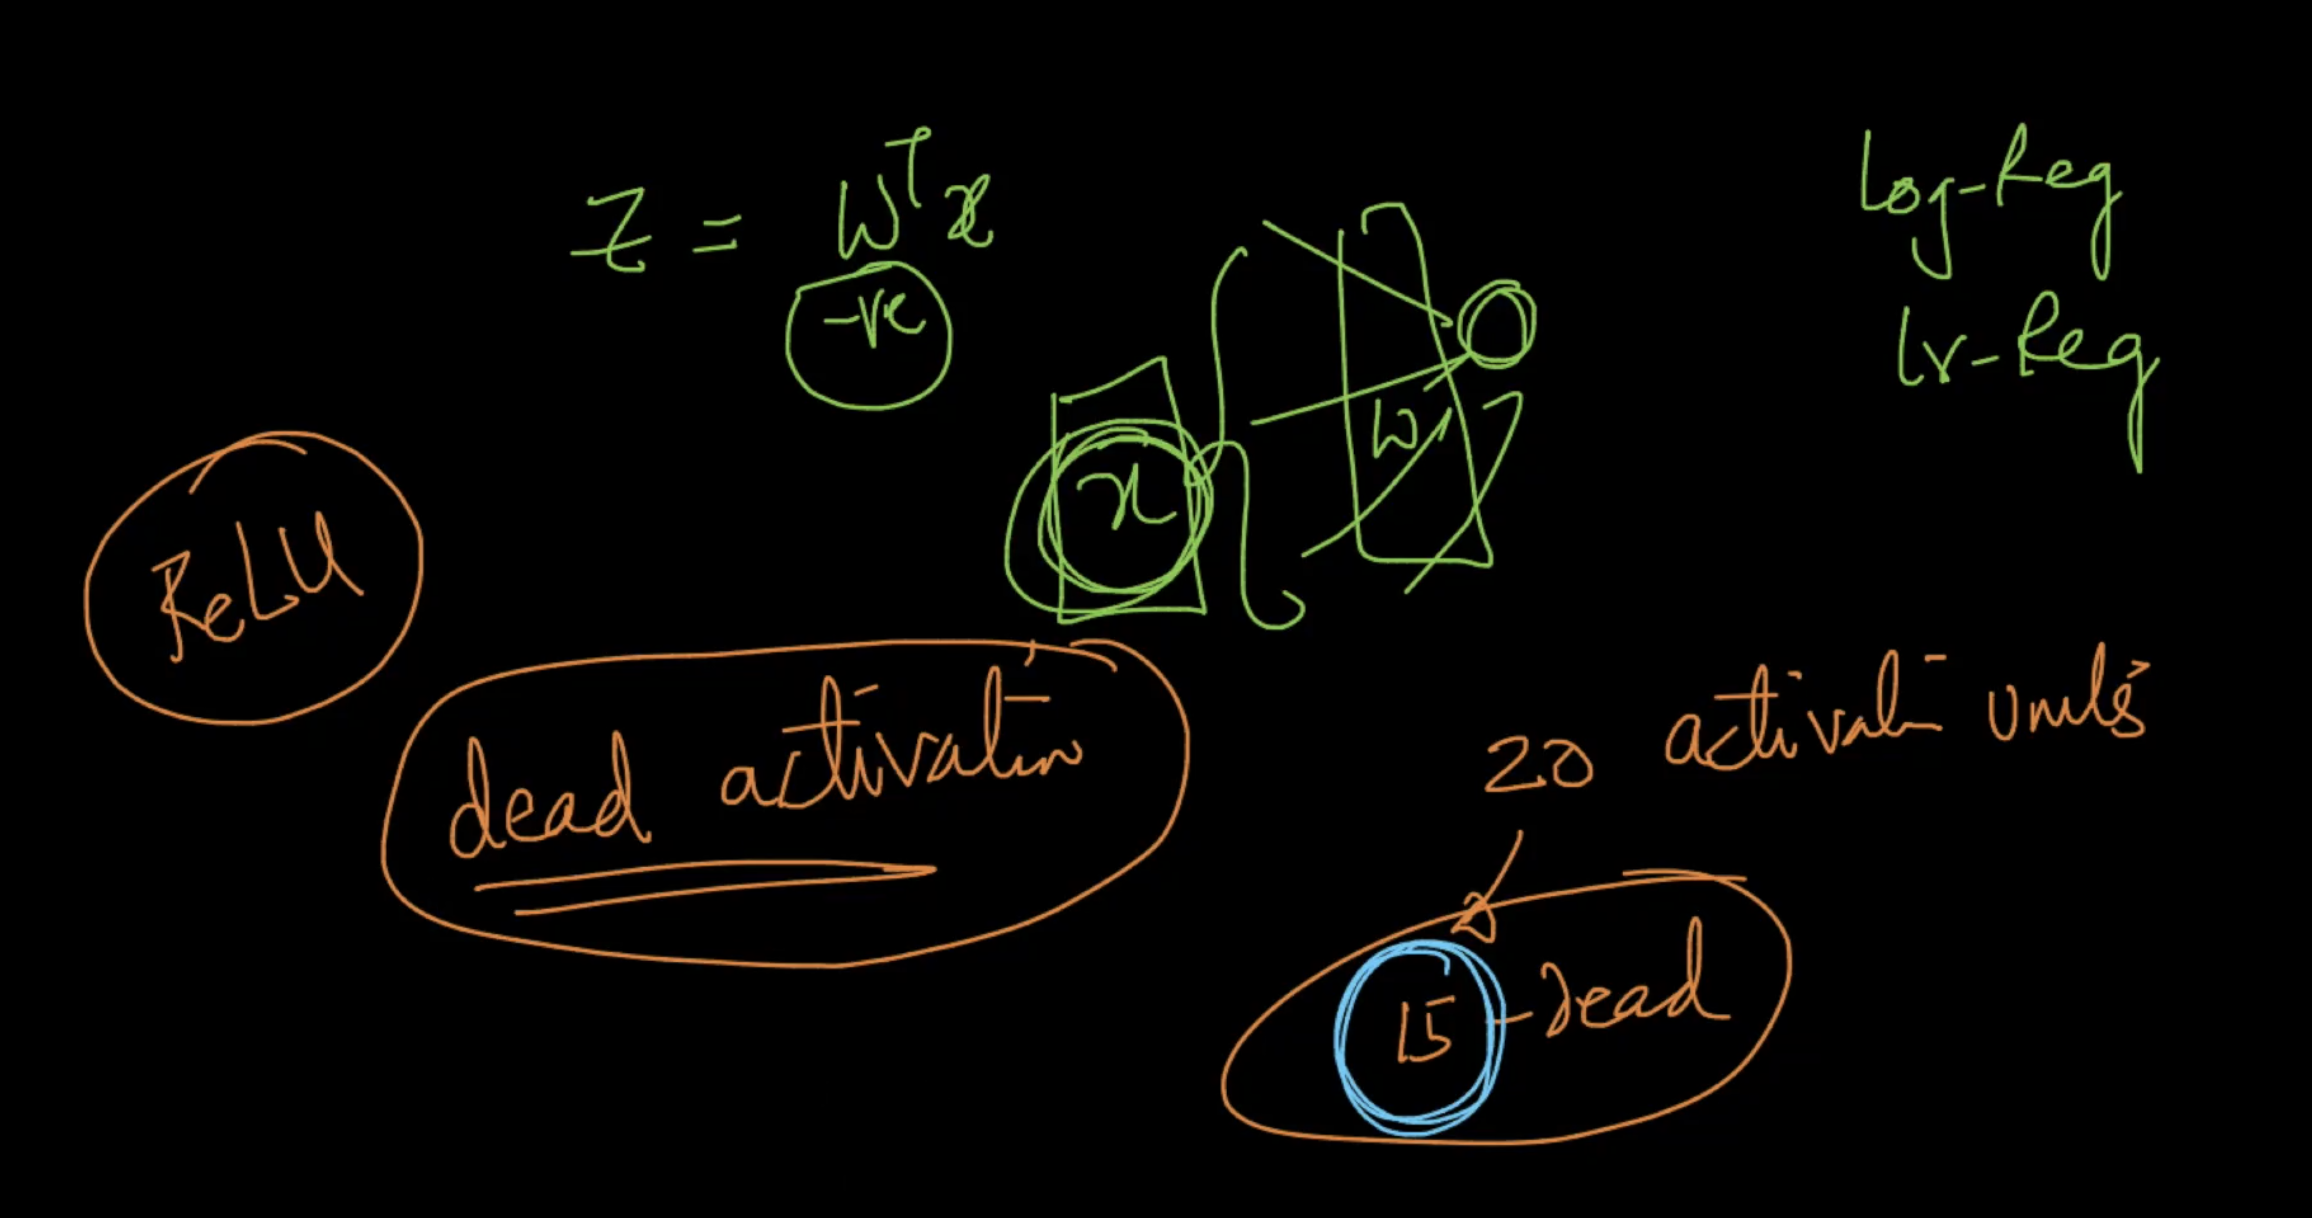 Z = W^T x
-ve
Log-Reg
Lr-Reg
W
x
ReLU
dead activation
20 activati units
15 - Dead